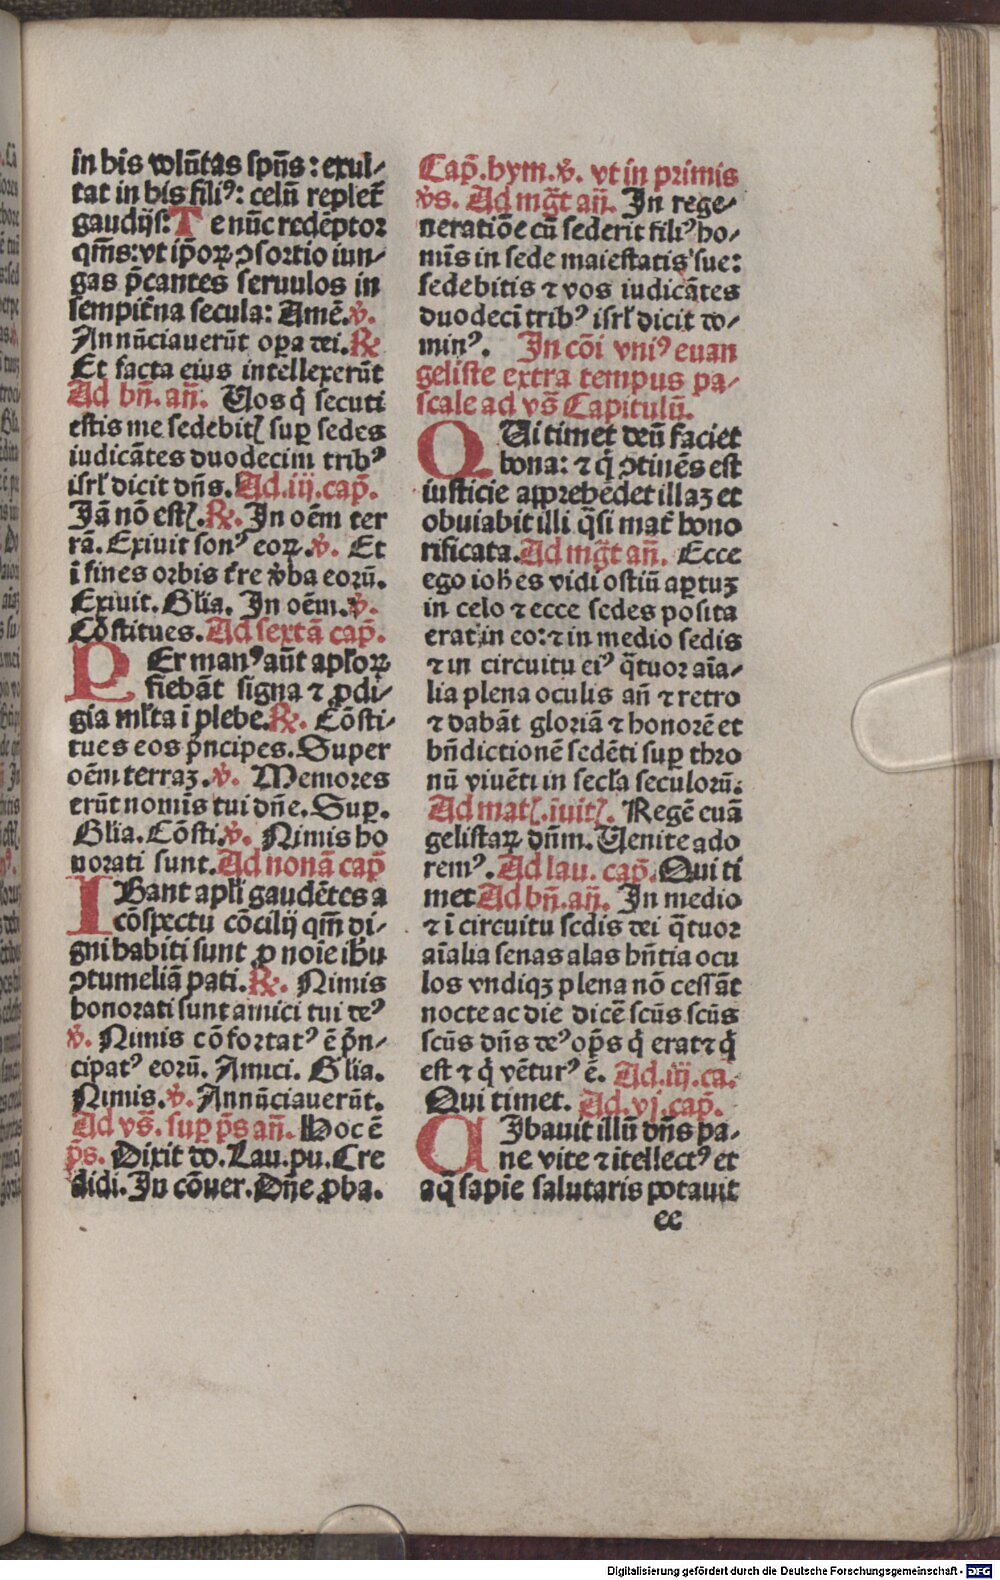 in his volūtas spūs: exul-
tat in his filiꝰ: celū repletᷣ
gaudijs: Te nūc redēptor
qm̄s: vt ip̄oꝝ ↄsortio iun-
gas p̄cantes seruulos in
sempit̄na secula: Amē. ℣.
Annūciauerūt oꝑa dei. ℞
Et facta eius intellexerūt
Ad bn̄. an̄. Uos q̄ secuti
estis me sedebitꝭ suꝑ sedes
iudicātes duodecim tribꝰ
isrl' dicit dn̄s. Ad .iij. cap̄.
Jā nō estꝭ. ℞. In oēm ter
rā. Exiuit sonꝰ eoꝝ. ℣. Et
ī fines orbis t̄re v̄ba eorū.
Exiuit. Gl̄ia. In oēm. ℣.
Cōstitues. Ad sextā cap̄.
PEr manꝰ aūt apl'oꝝ
fiebāt signa ⁊ ꝓdi-
gia ml'ta ī plebe. ℞. Cōsti-
tues eos p̄ncipes. Super
oēm terraꝫ. ℣. Memores
erūt nomīs tui dn̄e. Suꝑ.
Gl̄ia. Cōsti. ℣. Nimis ho
norati sunt. Ad nonā cap̄
IBant apl'i gaudētes a
cōspectu cōcilij qm̄ di-
gni habiti sunt ꝓ noīe ih̄u
ↄtumeliā pati. ℞. Nimis
honorati sunt amici tui deꝰ
℣. Nimis cōfortatꝰ ē p̄n-
cipatꝰ eorū. Amici. Gl̄ia.
Nimis. ℣. Annūciauerūt.
Ad vs̄. suꝑ p̄s an̄. Hoc ē
p̄s. Dixit do. Lau. pu. Cre
didi. In cōuer. Dn̄e ꝓba.
Cap̄. hym. ℣. vt in primis
v̄s. Ad mḡt an̄. In rege-
neratiōe cū sederit filiꝰ ho-
mīs in sede maiestatis sue:
sedebitis ⁊ vos iudicātes
duodecī tribꝰ isrl' dicit do-
minꝰ. In cōi vniꝰ euan
geliste extra tempus pa-
scale ad vs̄ Capitulū.
QUi timet deū faciet
bona: ⁊ q̄ ↄtinēs est
iusticie apprehēdet illaꝫ et
obuiabit illi q̄si mat̄ hono
rificata. Ad mḡt an̄. Ecce
ego ioh̄es vidi ostiū aꝑtuꝫ
in celo ⁊ ecce sedes posita
erat in eo: ⁊ in medio sedis
⁊ in circuitu eiꝰ q̄tuor aīa-
lia plena oculis an̄ ⁊ retro
⁊ dabāt gloriā ⁊ honorē et
bn̄dictionē sedēti suꝑ thro
nū viuēti in secl'a seculorū.
Ad matꝭ. īuitꝭ. Regē euā
gelistaꝝ dn̄m. Uenite ado
remꝰ. Ad lau. cap̄. Qui ti
met Ad bn̄. an̄. In medio
⁊ ī circuitu sedis dei q̄tuor
aīalia senas alas hn̄tia ocu
los vndiqꝫ plena nō cessāt
nocte ac die dicē scūs scūs
scūs dn̄s deꝰ op̄s q̄ erat ⁊ q̄
est ⁊ q̄ vēturꝰ ē. Ad .iij. ca.
Qui timet. Ad .vj. cap̄.
CIbauit illū dn̄s pa-
ne vite ⁊ ītellectꝰ et
aq̄ sapīe salutaris potauit
ee
Digitalisierung gefördert durch die Deutsche Forschungsgemeinschaft - DFG